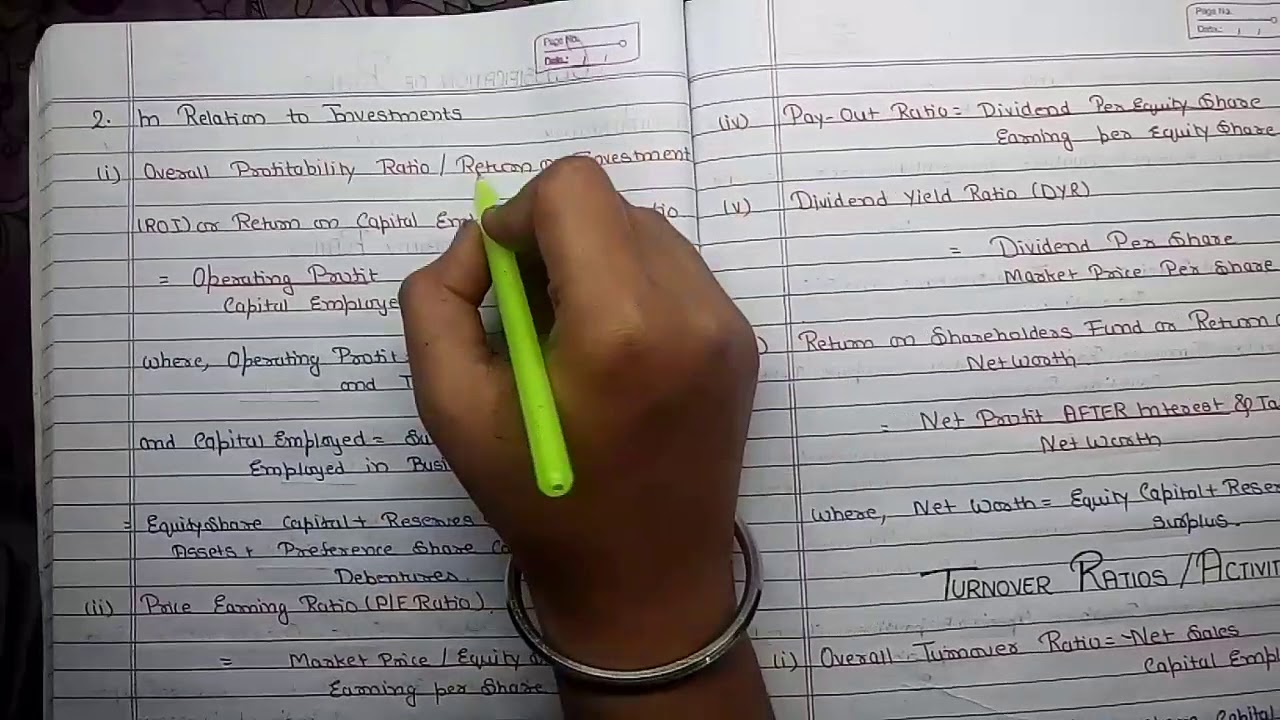 Page No.
Date:
2. In Relation to Investments
(i) Overall Profitability Ratio / Return on Investment
(ROI) or Return on Capital
= Operating Profit
Capital Employe
where, Operating Profit
and
and Capital Employed =
Employed in
= Equity Share Capital + Reserves
Assets + Preference Share
Debentures.
(ii) Price Earning Ratio (P/E Ratio).
= Market Price / Equity
Earning per Share
Page No.
Date:
(iv) Pay-Out Ratio = Dividend Per Equity Share
Earning per Equity Share
(v) Dividend Yield Ratio (DYR)
= Dividend Per Share
Market Price Per Share
Return on Shareholders Fund or Return
Net Worth
= Net Profit AFTER Interest & Ta
Net Worth
where, Net Worth = Equity Capital + Reser
Surplus.
TURNOVER RATIOS / ACTIVIT
(i) Overall Turnover Ratio = Net Sales
Capital Empl
Capital